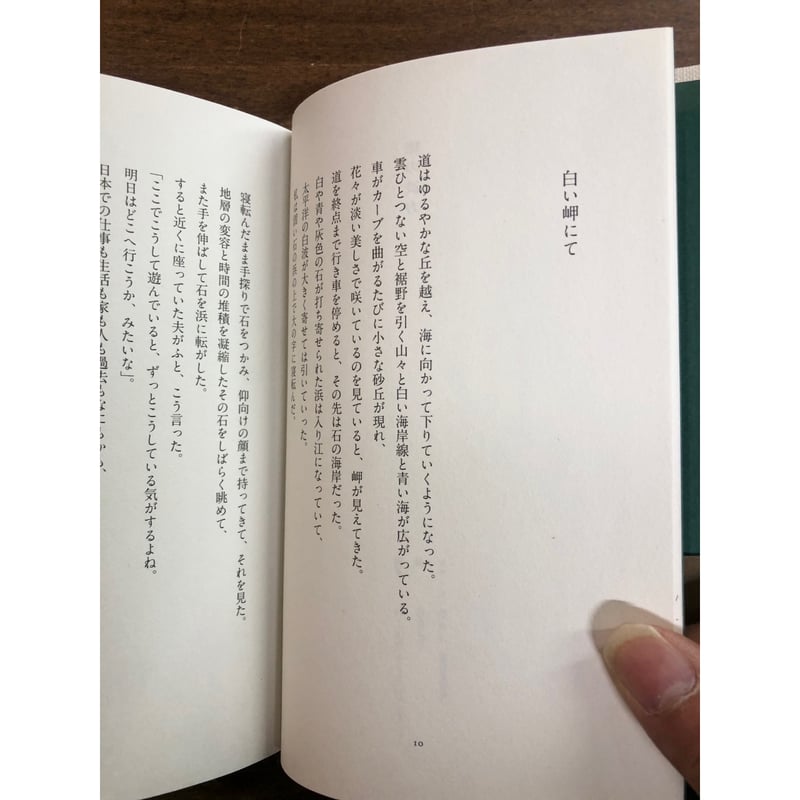 白い岬にて
道はゆるやかな丘を越え、海に向かって下りていくようになった。
雲ひとつない空と裾野を引く山々と白い海岸線と青い海が広がっている。
車がカーブを曲がるたびに小さな砂丘が現れ、
花々が淡い美しさで咲いているのを見ていると、岬が見えてきた。
道を終点まで行き車を停めると、その先は石の海岸だった。
白や青や灰色の石が打ち寄せられた浜は入り江になっていて、
太平洋の白波が大きく寄せては引いていった。
私は固い石の浜の上で大の字に寝転んだ。
10
寝転んだまま手探りで石をつかみ、仰向けの顔まで持ってきて、それを見た。
地層の変容と時間の堆積を凝縮したその石をしばらく眺めて、
また手を伸ばして石を浜に転がした。
すると近くに座っていた夫がふと、こう言った。
「ここでこうして遊んでいると、ずっとこうしている気がするよね。
明日はどこへ行こうか、みたいな」。
日本での仕事も生活も家も人も過去も